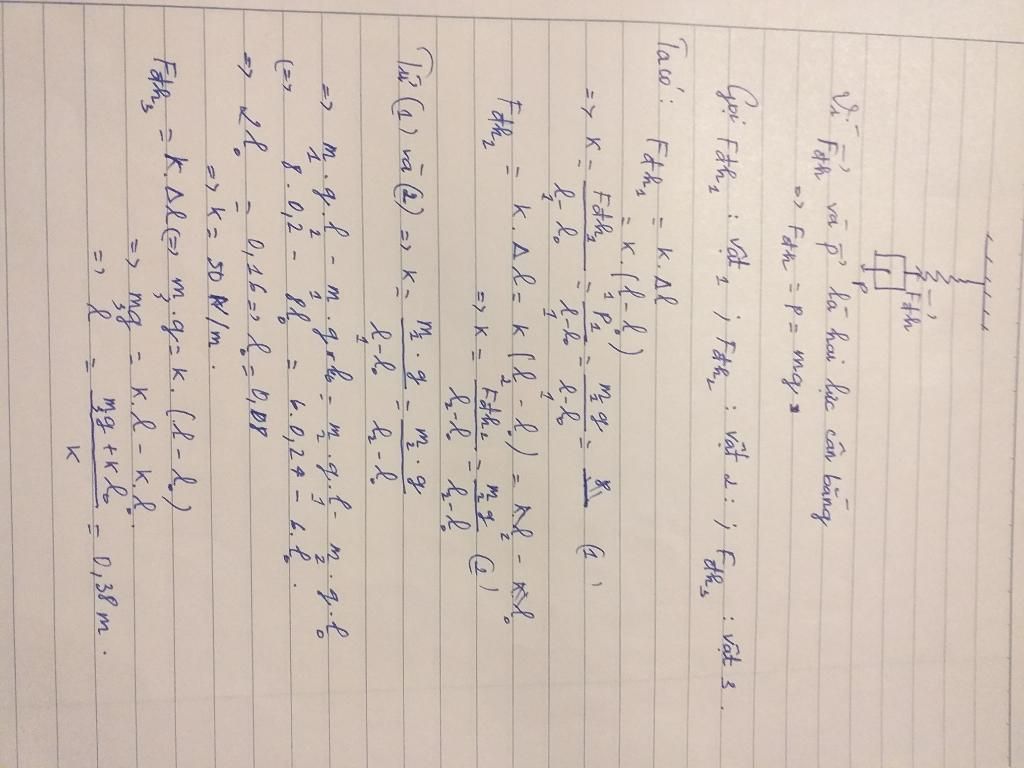 Fđh
P
Vì Fđh và P là hai lực cân bằng
=> Fđh = P = mg.
Gọi Fđh₁ : vật 1 ; Fđh₂ : vật 2 ; Fđh₃ : vật 3.
Ta có: Fđh₁ = k.Δl
= k.(l₁-l₀)
=> k = Fđh₁/(l₁-l₀) = P₁/(l₁-l₀) = m₁g/(l₁-l₀) = (1)
Fđh₂ = k.Δl = k(l₂-l₀) = kl₂ - kl₀
=> k = Fđh₂/(l₂-l₀) = m₂g/(l₂-l₀) (2)
Từ (1) và (2) => k = m₁.g/(l₁-l₀) = m₂.g/(l₂-l₀)
=> m₁.g.l₂ - m₁.g.l₀ = m₂.g.l₁ - m₂.g.l₀
(=> 8.0,2 - 8l₀ = 6.0,24 - 6.l₀.
=> 2l₀ = 0,16 => l₀ = 0,08
=> k = 50 N/m.
Fđh₃ = k.Δl (=> m₃.g = k.(l-l₀)
=> m₃g = kl - kl₀.
=> l = (m₃g + kl₀)/k = 0,38 m.